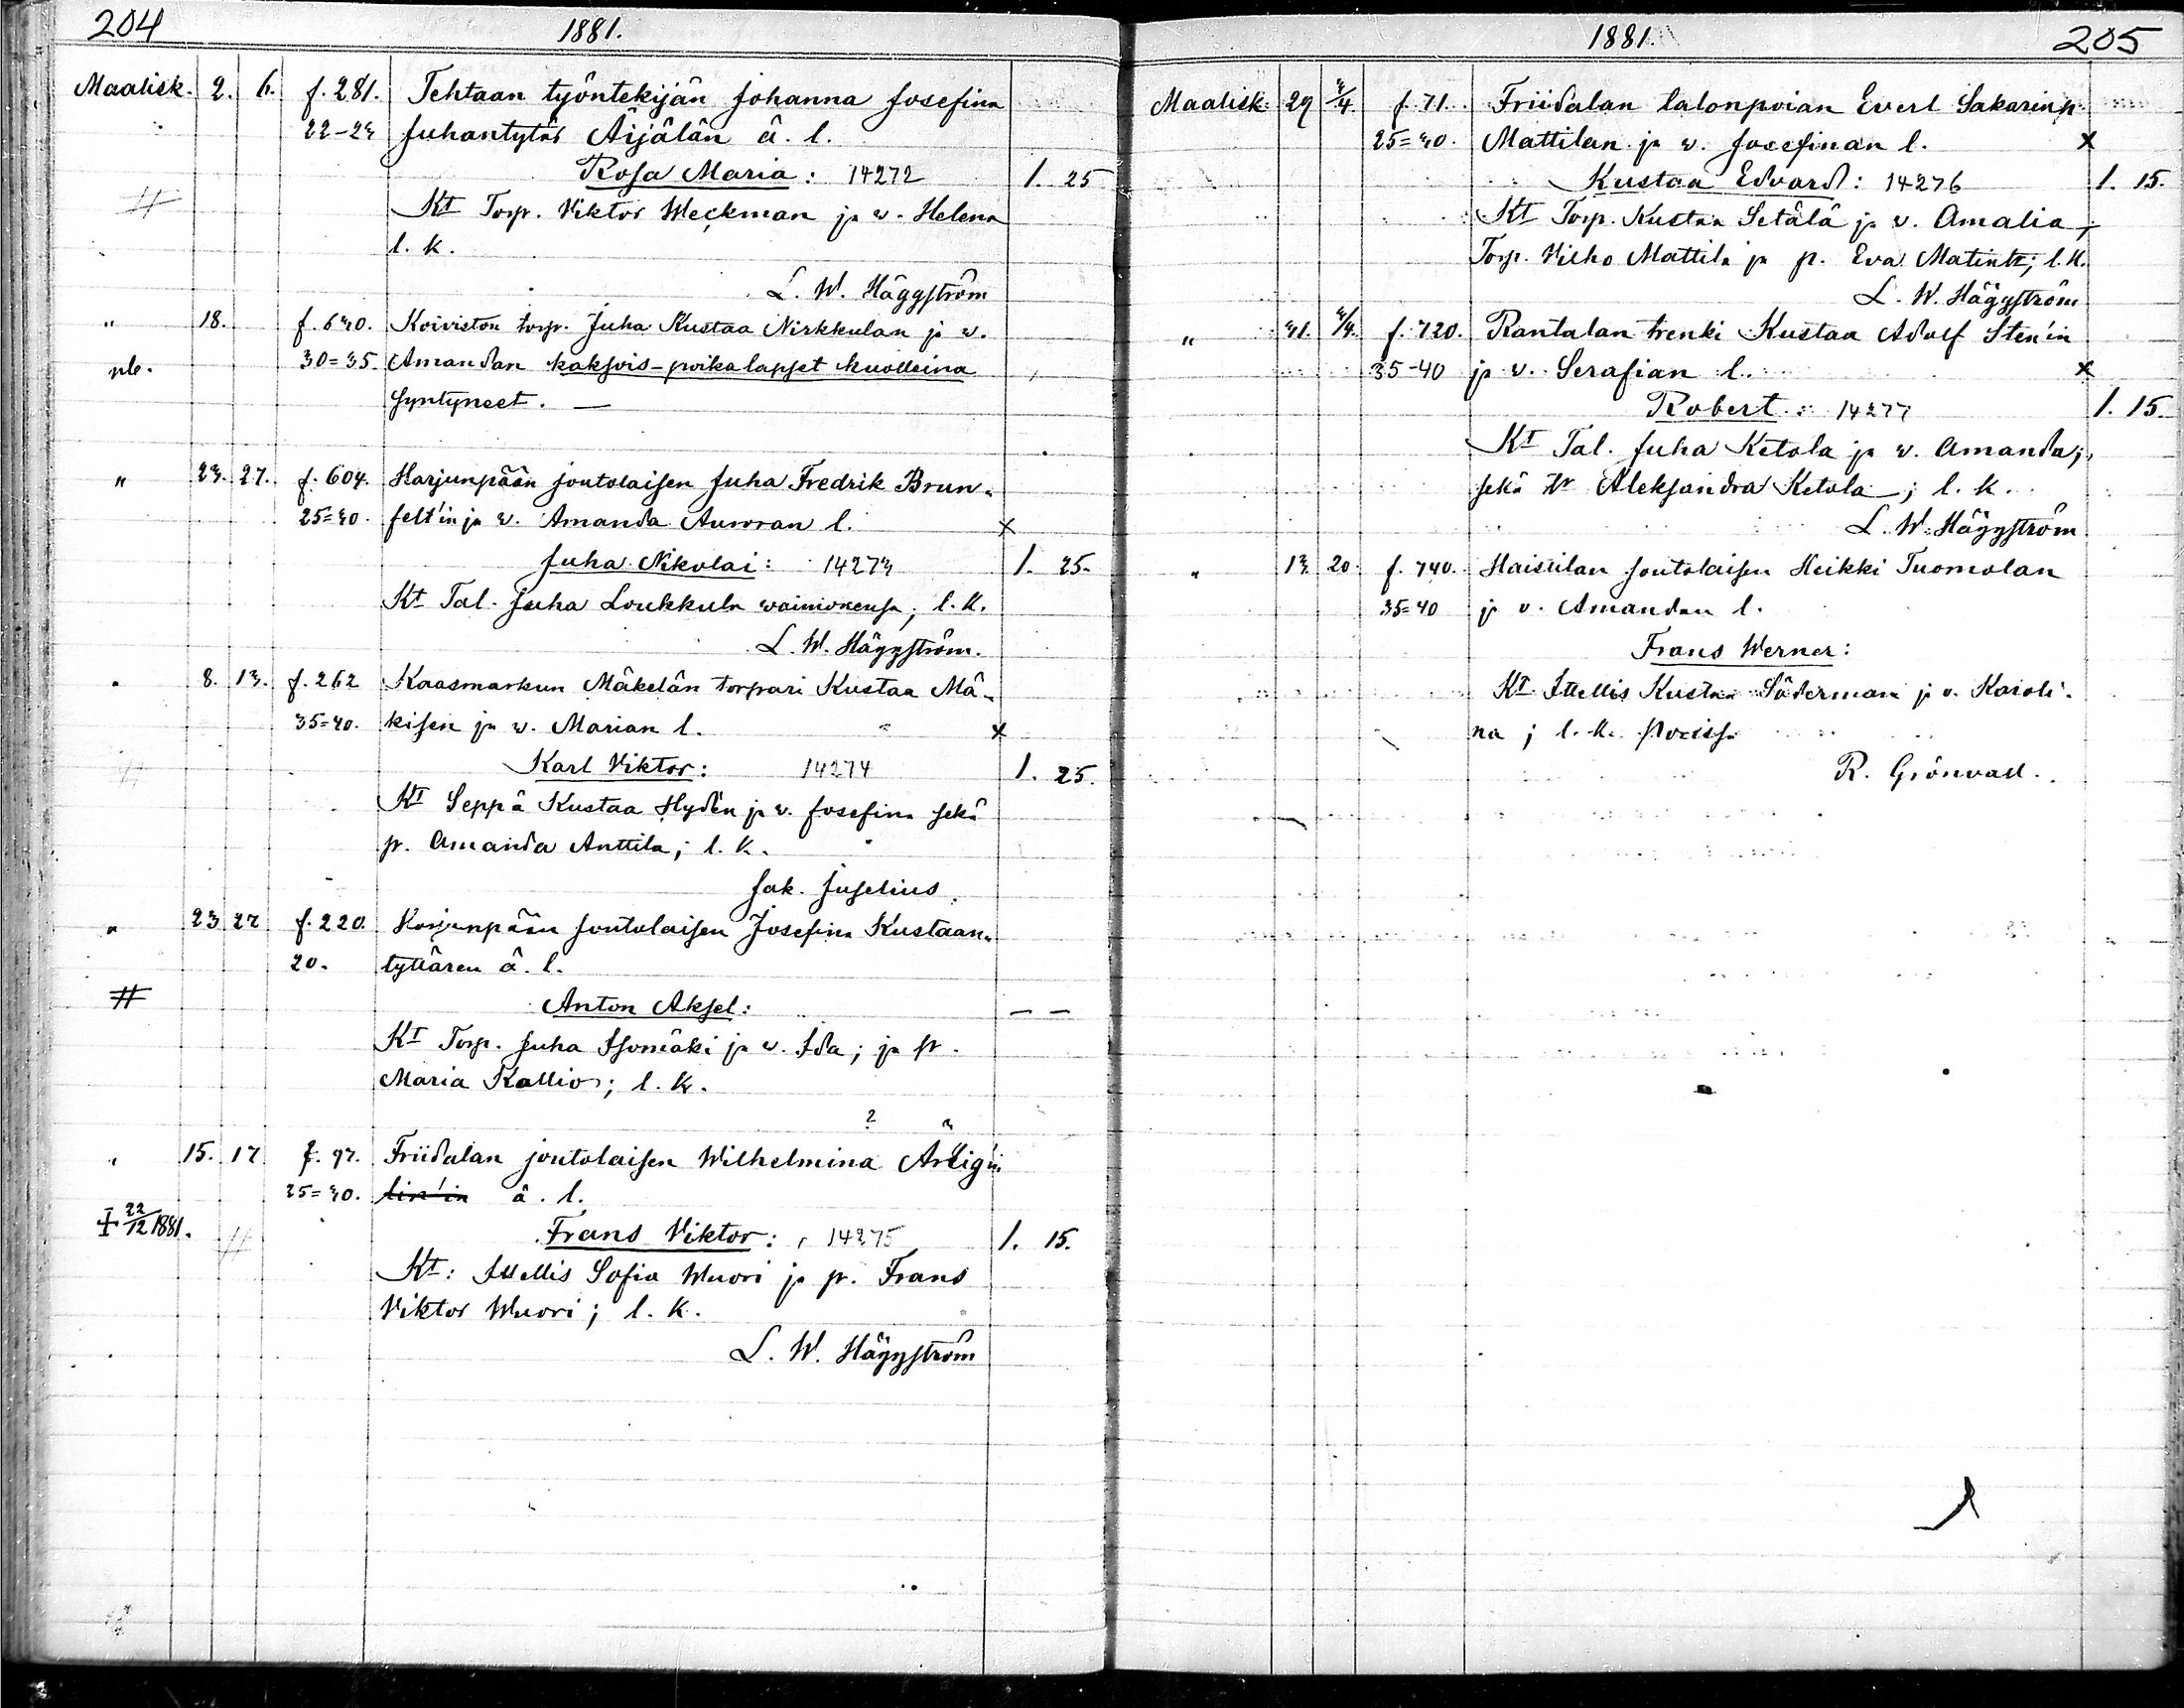 204
1881.
Maalisk. 2. 6. f. 281. Tehtaan työntekijän Johanna Josefina
22-23 Juhantytär Äijälän ä. l.
Rosa Maria: 14272 1. 25
Kt Torp. Viktor Weckman ja w. Helena
l. k.
L. W. Häggström
" 18. f. 630. Koiviston torp. Juha Kustaa Nirkkulan ja w.
30=35. Amandan kaksois-poikalapset kuolleina
syntyneet. —
" 23. 27. f. 604. Harjunpään joutolaisen Juha Fredrik Brun-
25=30. felt'in ja w. Amanda Auroran l. x
Juha Nikolai: 14273 1. 25.
Kt Tal. Juha Loukkula vaimonensa; l. k.
L. W. Häggström.
" 8. 13. f. 262 Kaasmarkun Mäkelän torpari Kustaa Mä-
35=40. kisen ja w. Marian l. x
Karl Viktor: 14274 1. 25.
Kt Seppä Kustaa Hydén ja w. Josefina sekä
p. Amanda Anttila; l. k.
Jak. Juselius.
" 23 27 f. 220. Harjunpään joutolaisen Josefina Kustaan-
20. tyttären ä. l.
# Anton Aksel: — —
Kt Torp. Juha Isomäki ja w. Ida; ja p.
Maria Kallio; l. k.
?
" 15. 17 f. 97. Friidalan joutolaisen Wilhelmina
25=30. ä. l.
22/12 1881. # Frans Viktor: 14275 1. 15.
Kt: Itellis Sofia Wuori ja p. Frans
Viktor Wuori; l. k.
L. W. Häggström
1881.
205
Maalisk. 29 3/4. f. 71. Friidalan talonpoian Evert Sakarinp.
25=30. Mattilan ja w. Josefinan l. x
Kustaa Edvard: 14276 1. 15.
Kt Torp. Kustaa Setälä ja v. Amalia,
Torp. Vilho Mattila ja p. Eva Matintr; l. k.
L. W. Häggström
" 31. 3/4. f. 720. Rantalan trenki Kustaa Adolf Sten'in
35-40 ja v. Serafian l. x
Robert: 14277 1. 15.
Kt Tal. Juha Ketola ja w. Amanda;
sekä Aleksandra Ketola; l. k.
L. W. Häggström
" 13 20 f. 740. Haistilan joutolaisen Heikki Tuomolan
35=40 ja v. Amandan l.
Frans Werner:
Kt Itellis Kustaa Söderman ja v. Karoli-
na; l. k. Porissa
R. Grönvall.